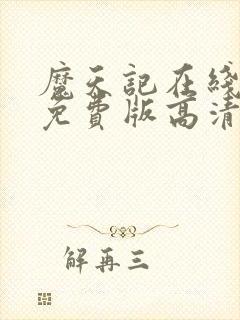 魔天記在綫
免費版高清
解再三